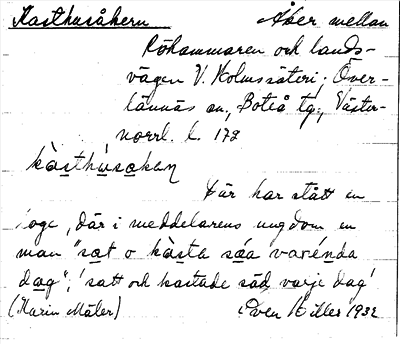 Kasthusåkern Åker mellan
Röhammaren och lands-
vägen V. Holmsäteri; Över-
lännäs sn., Boteå tg., Väster-
norrl. l. 172
kàsthùsaken
Där har stått en
loge, där i meddelarens ungdom en
man "sat o kàsta sǽa varénda
dag", 'satt och kastade säd varje dag'
(Karin Mäler) Sven Hilles 1932